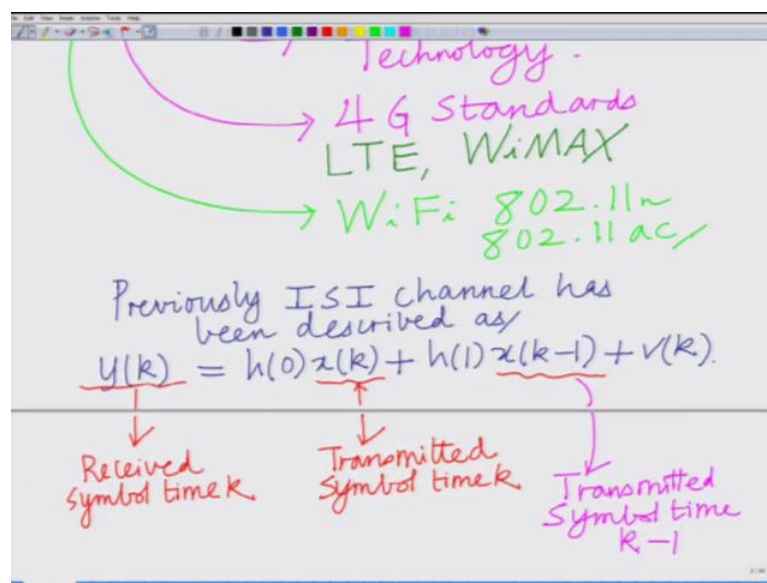 Technology.
4G Standards
LTE, WiMAX
WiFi 802.11n
802.11 ac/
Previously ISI channel has
been described as/
y(k) = h(0)x(k) + h(1)x(k-1) + v(k).
Received
symbol time k.
Transmitted
symbol time k.
Transmitted
Symbol time
k-1